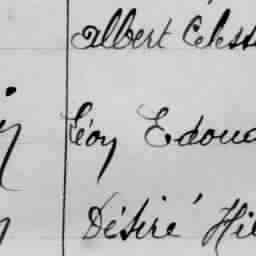 Albert Céless
Léon Edoua
Désiré Hil